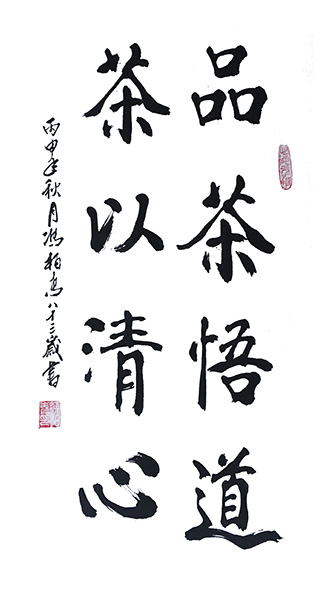 品茶悟道
茶以清心
丙申年秋月冯柏亭八十三岁书